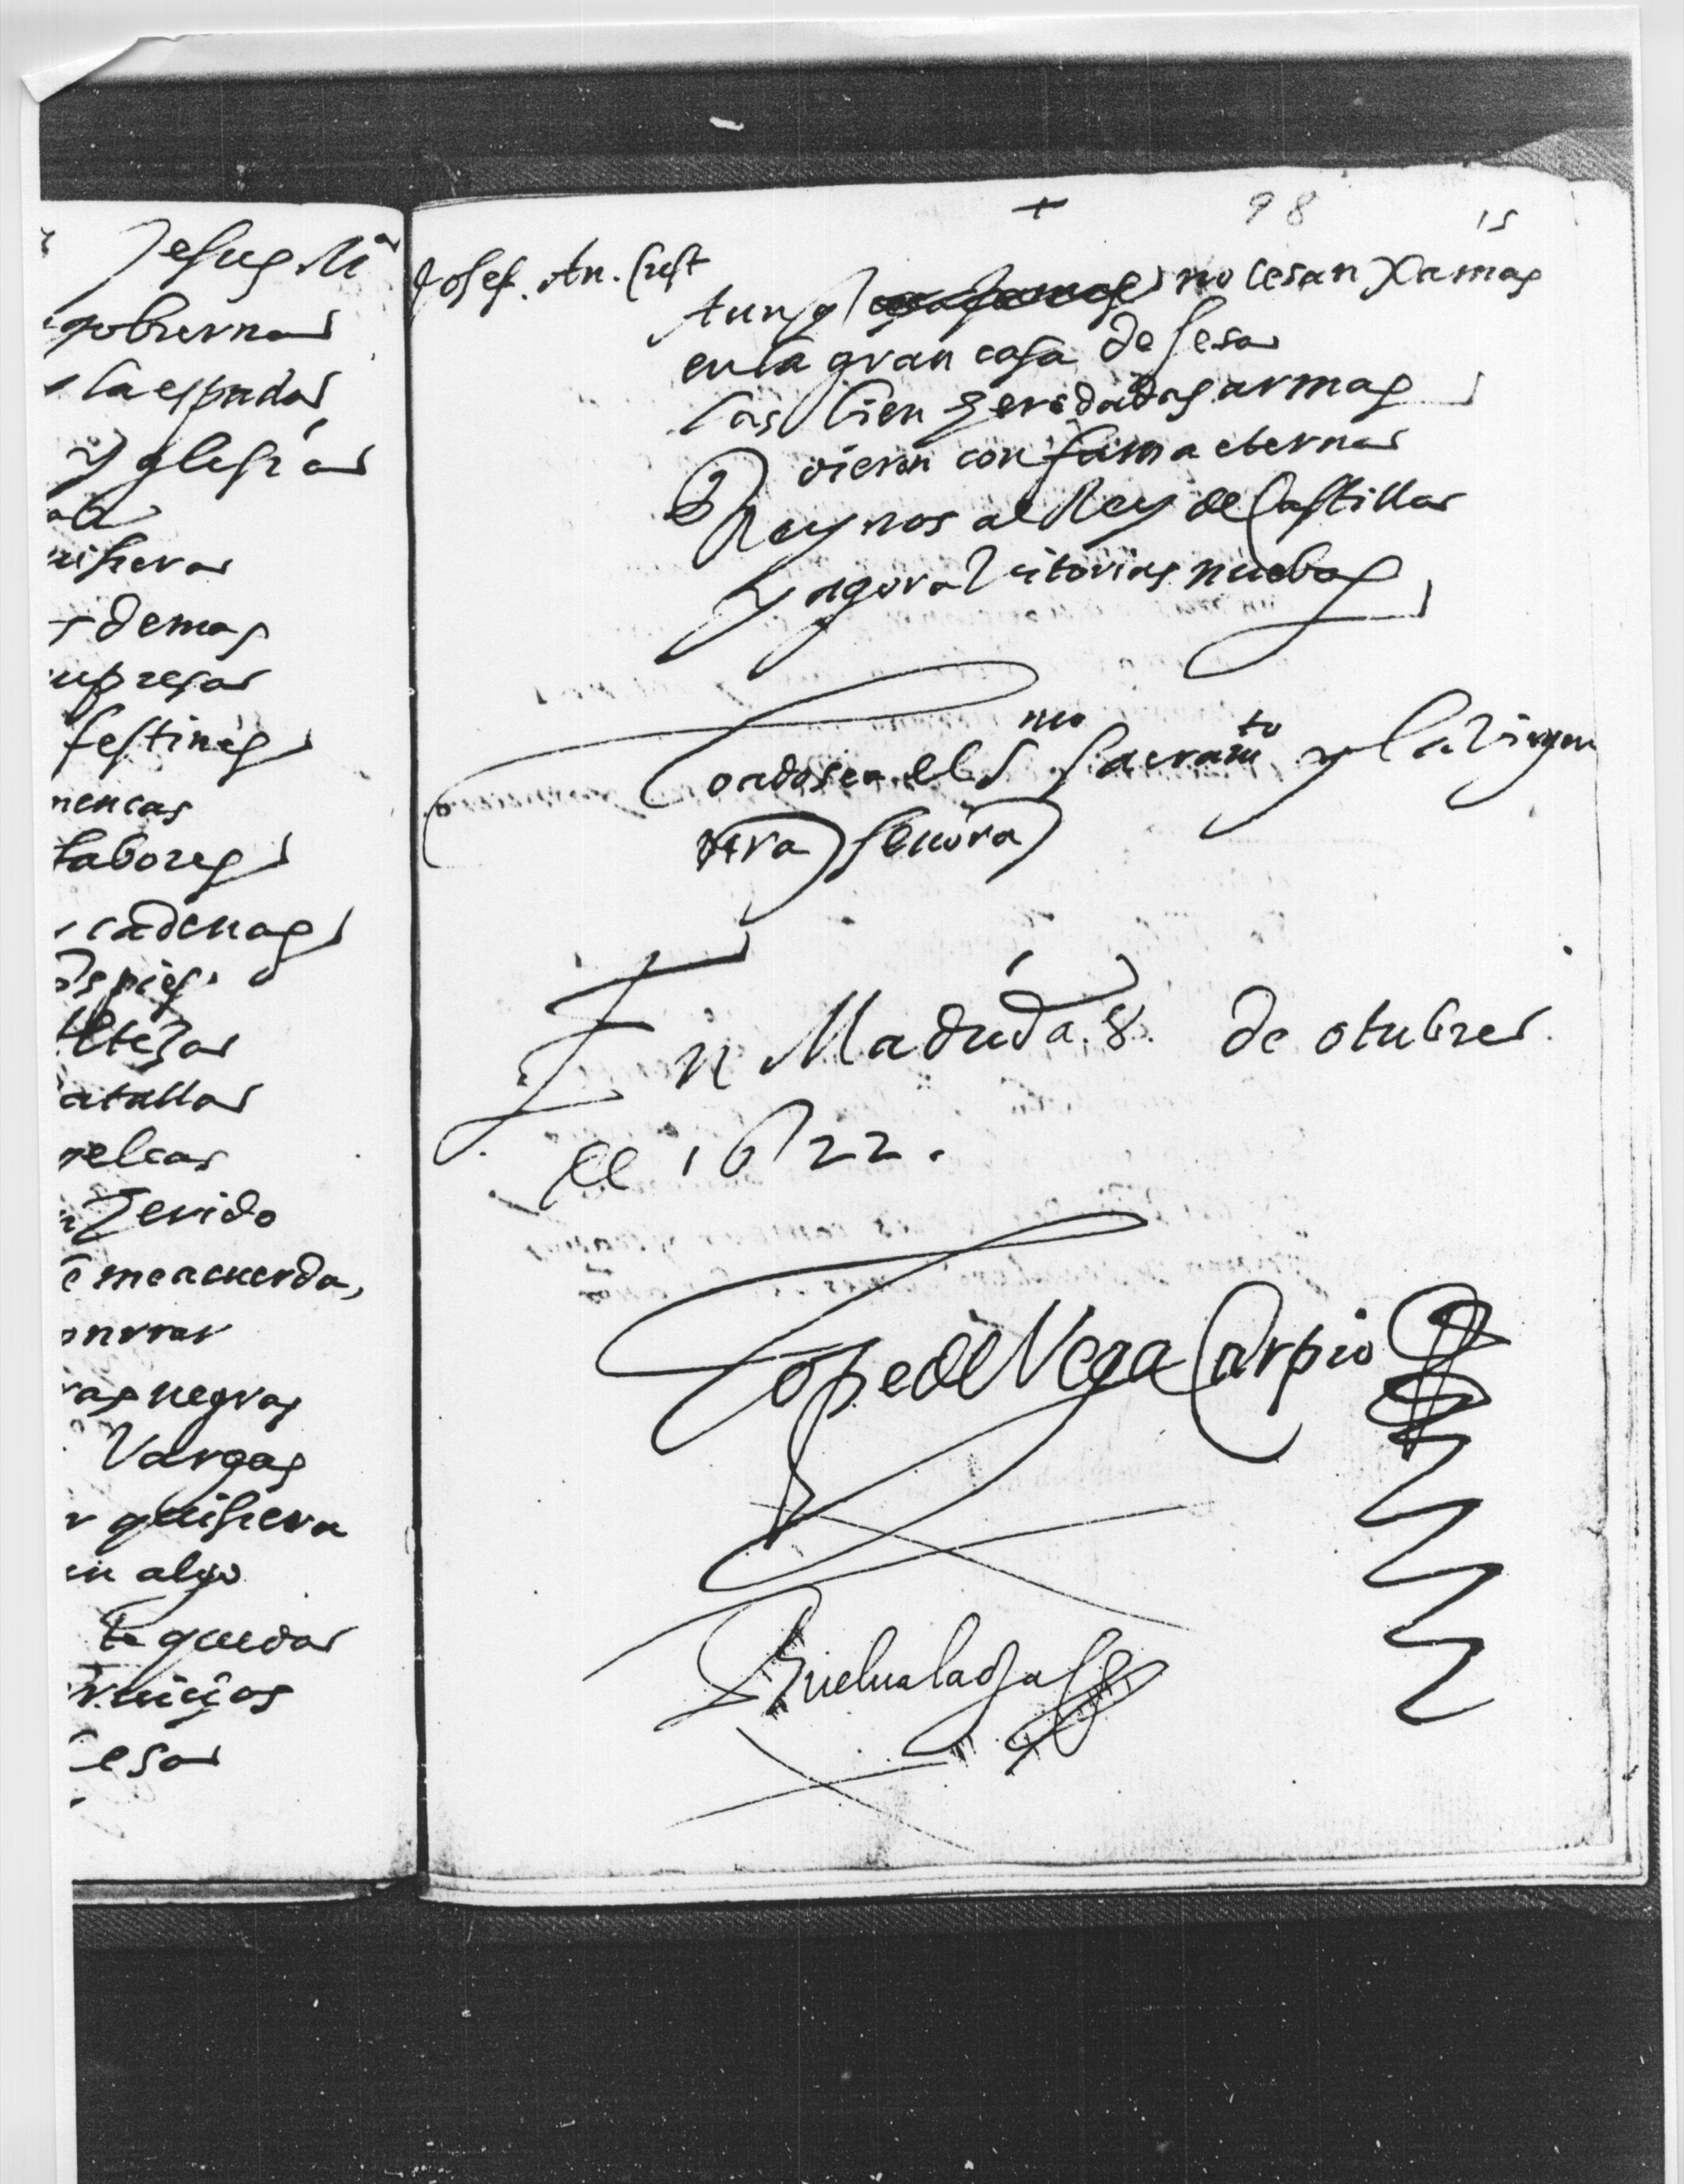 Jesus Mª
gobierna
la espada
yglesia
quisiera
demas
empresa
festines
flamencas
labores
cadenas
los pies
Alteza
batalla
pelea
Zerido
me acuerda,
onrrar
negras
Vargas
quisiera
en algo
te queda
seruicios
Sesa
+
98
15
Josef. An. Cust
Aunq no cesan xamas
en la gran casa de Sesa
las bien heredadas armas
dieron con fama eterna
Reynos al Rey de Castilla
y agora Vitorias nuebas
Loado sea el Smo Sacramto y la Virgen
ntra Señora
En Madrid a 8. de otubre
de 1622.
Lope de Vega Carpio